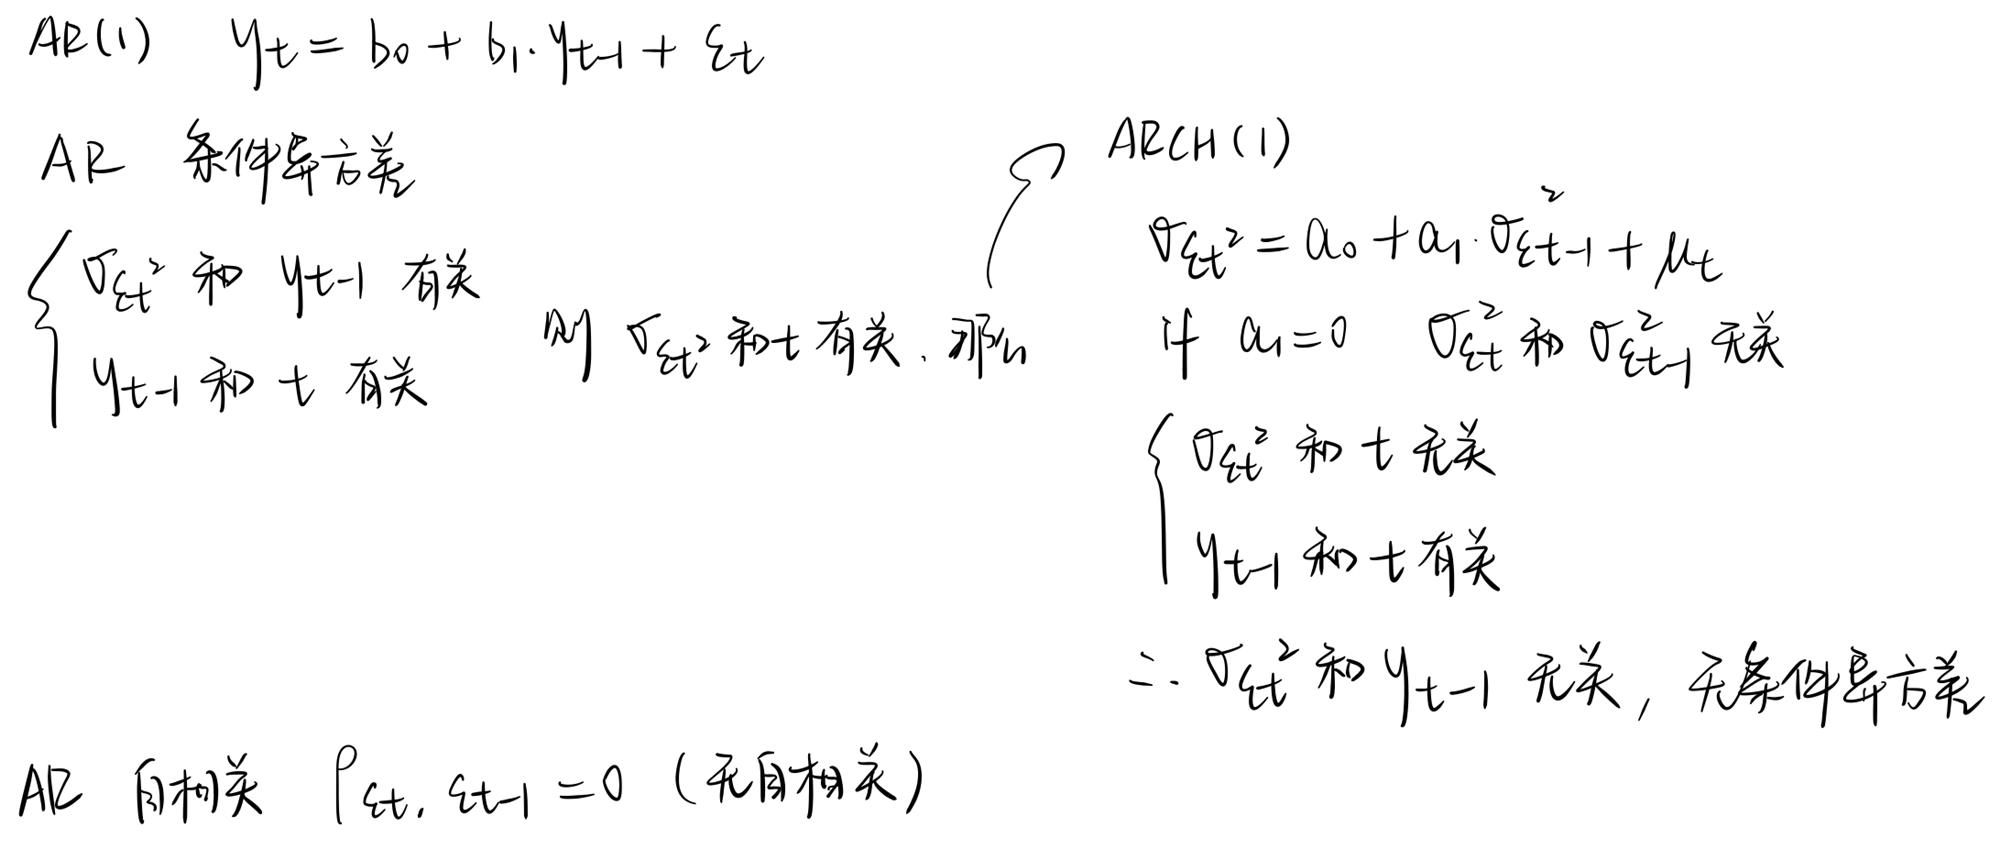 AR(1) yt = b0 + b1·yt-1 + εt
AR 条件异方差
σεt² 和 yt-1 有关
yt-1 和 t 有关
则 σεt² 和 t 有关、那么
ARCH(1)
σεt² = a0 + a1·σεt-1² + μt
if a1=0 σεt² 和 σεt-1² 无关
σεt² 和 t 无关
yt-1 和 t 有关
∴ σεt² 和 yt-1 无关, 无条件异方差
AR 自相关 ρεt, εt-1 = 0 (无自相关)